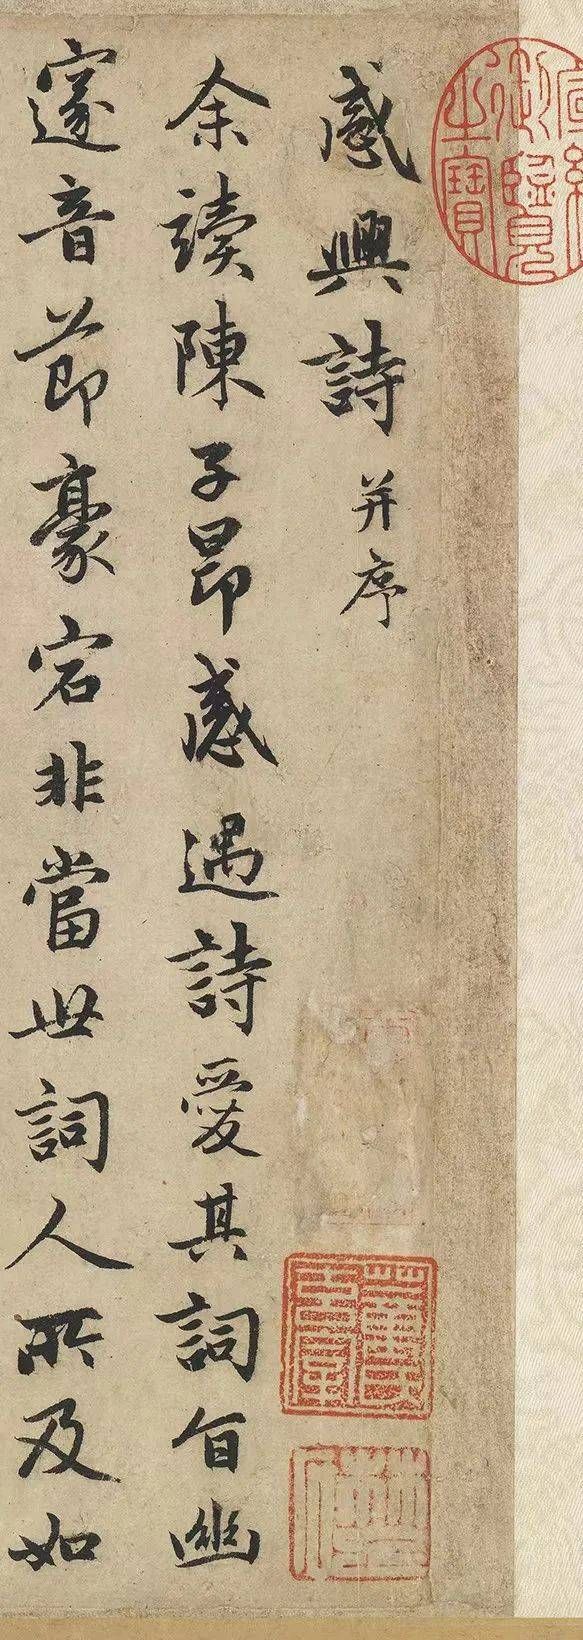 宣統
御覽
之寶
感興詩 并序
余讀陳子昂感遇詩愛其詞旨幽
邃音節豪宕非當世詞人所及如